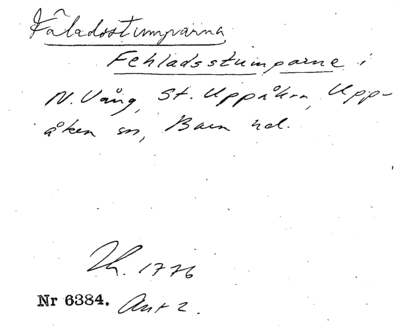 Fäladsstumparna
Fehladsstumparne i
N. Vång, St. Uppåkra, Upp-
åkra sn, Bara hd.
Th. 1776
Nr 6384. Akt 2.